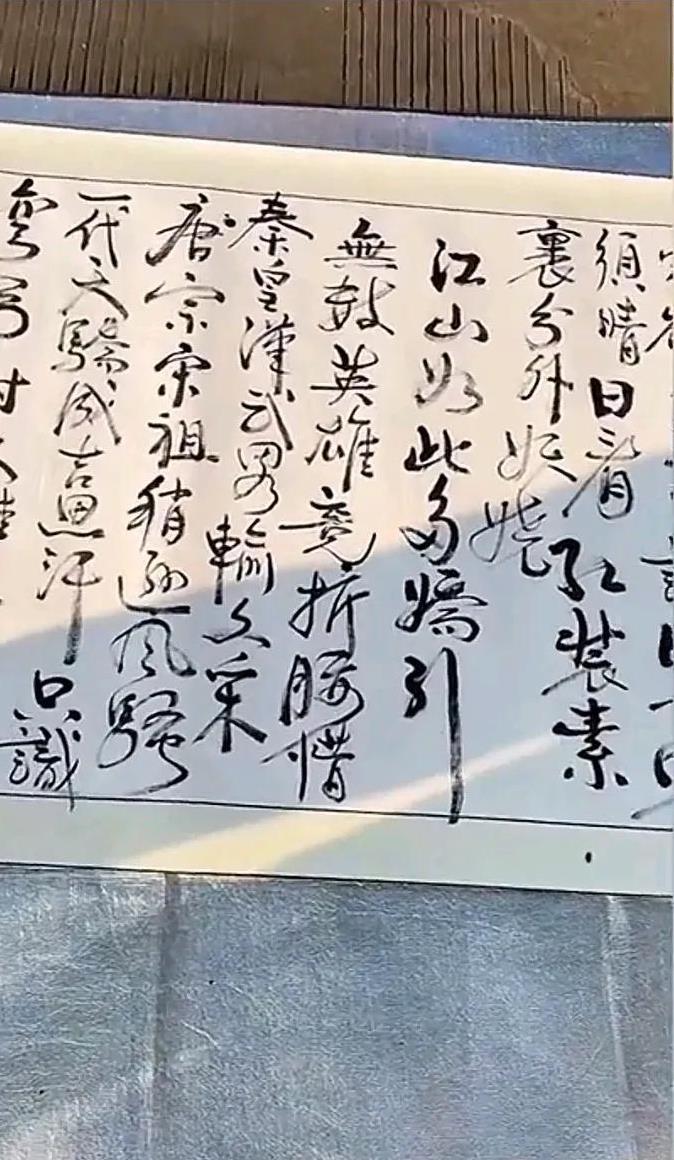 須晴日看紅裝素
裹分外妖嬈
江山如此多嬌引
無數英雄竞折腰惜
秦皇漢武畧輸文采
唐宗宋祖稍遜風騷
一代天驕成吉思汗只識
彎弓射大